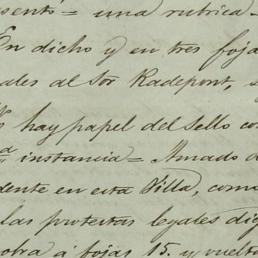 sentó = una rubrica =
En dicho y en tres foja
ales al Sor Radepont, s
hay papel del Sello co
a instancia = Amado d
dente en esta Villa, com
las protestas legales dig
obra á fojas 15. y vuelto